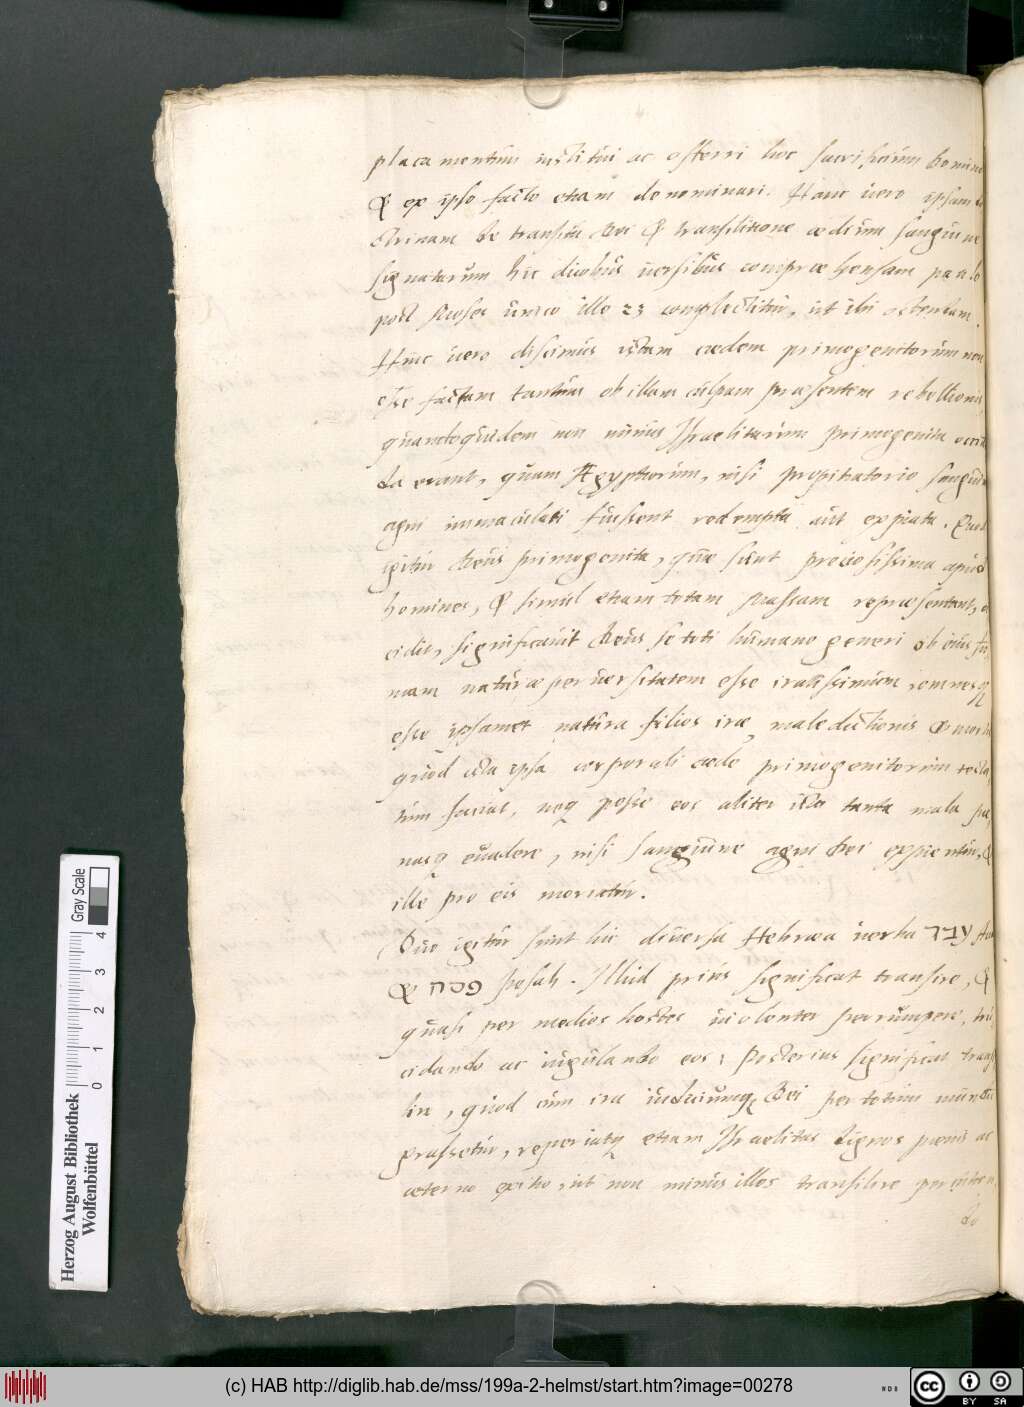 placamentum institui ac offerri hoc sacrificium homine
& ex ipso facto etiam denominari. Hanc uero ipsam do
ctrinam de transitu Dei & transilitione ædium sanguine
signatarum hic duobus uersibus compræhensam paulo
post Moses unico illo 23 complectitur, ut ibi ostendam.
Hinc uero discimus istam cædem primogenitorum non
esse factam tantum ob illam culpam præsentem rebellionis,
quandoquidem non minus Israelitarum primogenita occiden
da erant, quam Ægyptiorum, nisi propitiatorio sanguine
agni immaculati fuissent redempta aut expiata. Quod
igitur Deus primogenita, quæ sunt preciosissima apud
homines, & simul etiam totam massam repræsentant, oc
cidit, significauit Deus se toti humano generi ob eius sum
mam naturæ peruersitatem esse iratissimum, omnesq
esse ipsamet natura filios iræ maledictionis & mortis
quod ista ipsa corporali cæde primogenitorum testa
tum faciat, neq posse eos aliter ista tanta mala pœ
nasq euadere, nisi sanguine agni Dei expientur, &
ille pro eis moriatur.
Duo igitur sunt hic diuersa Hebræa uerba עבר
& פסח Pesah. Illud prius significat transire, &
quasi per medios hostes uiolenter perrumpere, tru
cidando ac iugulando eos: Posterius significat transi
lire, quod cum ira iudiciumq Dei per totum mundum
grassetur, reperiatq etiam Israelitas dignos pœnis ac
æterno exitio, ut non minus illos transilire
do
0 1 2 3 4
Gray Scale
Herzog August Bibliothek
Wolfenbüttel
(c) HAB http://diglib.hab.de/mss/199a-2-helmst/start.htm?image=00278
cc BY SA